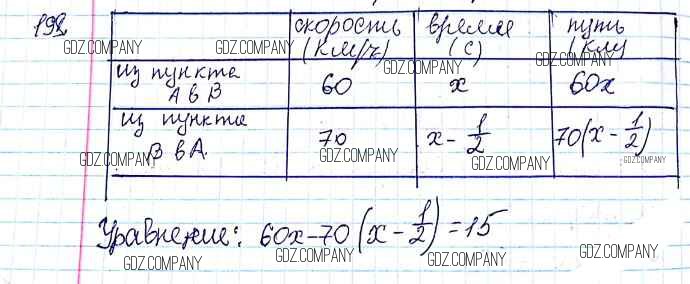 198
скорость (км/ч)
время (с)
путь (км)
из пункта А в В
60
x
60x
из пункта В в А.
70
x - 1/2
70(x - 1/2)
Уравнение: 60x-70(x - 1/2) = 15
GDZ.COMPANY
GDZ.COMPANY
GDZ.COMPANY
GDZ.COMPANY
GDZ.COMPANY
GDZ.COMPANY
GDZ.COMPANY
GDZ.COMPANY
GDZ.COMPANY
GDZ.COMPANY
GDZ.COMPANY
GDZ.COMPANY